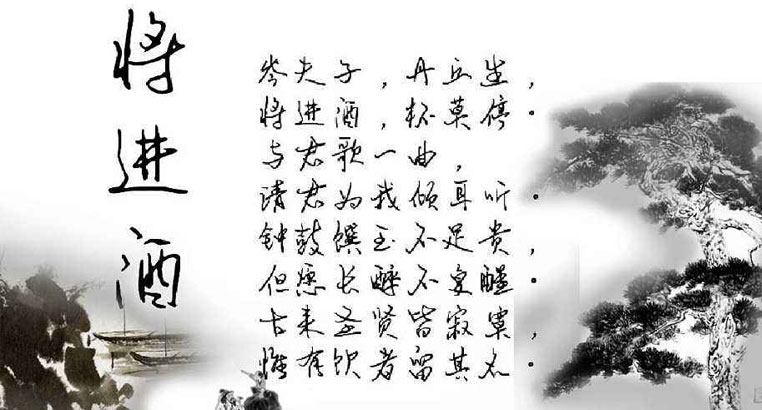 将进酒
岑夫子，丹丘生，
将进酒，杯莫停。
与君歌一曲，
请君为我倾耳听。
钟鼓馔玉不足贵，
但愿长醉不复醒。
古来圣贤皆寂寞，
惟有饮者留其名。